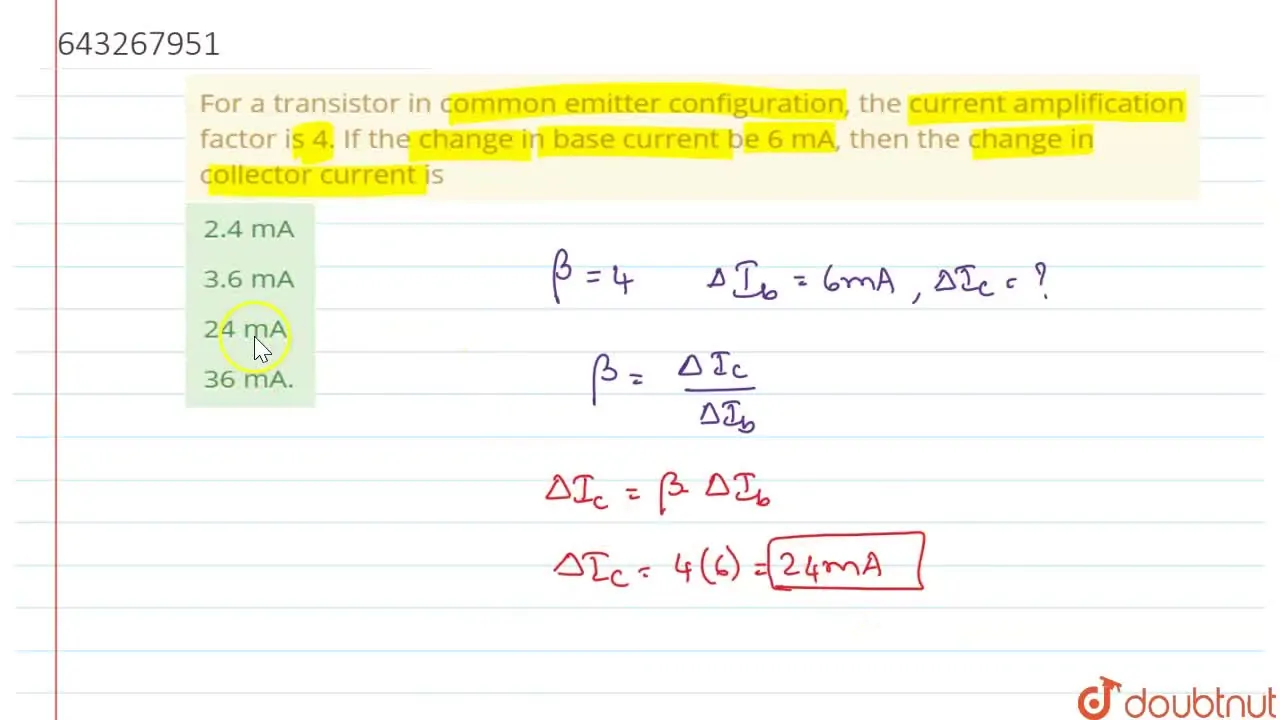 643267951
For a transistor in common emitter configuration, the current amplification
factor is 4. If the change in base current be 6 mA, then the change in
collector current is
2.4 mA
3.6 mA
24 mA
36 mA.
β = 4 ΔIb = 6mA, ΔIc = ?
β = ΔIc
ΔIb
ΔIc = β ΔIb
ΔIc = 4(6) = 24mA
doubtnut